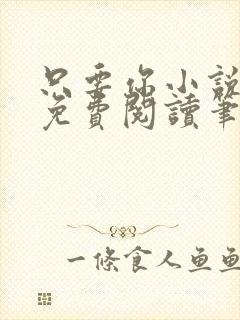 只要你小說
免費閱讀筆
一條食人魚魚